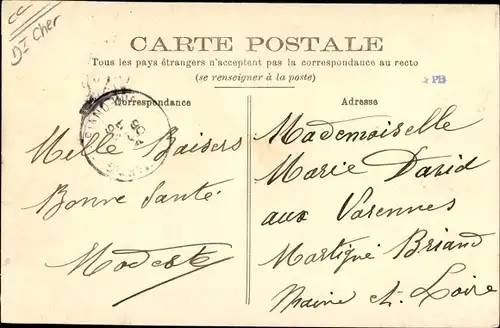 CARTE POSTALE
Tous les pays étrangers n'acceptent pas la correspondance au recto
(se renseigner à la poste)
PB
Correspondance
Adresse
Mille Baisers
Bonne Santé
Modeste
Mademoiselle
Marie David
aux Varennes
Martigné Briand
Maine et Loire